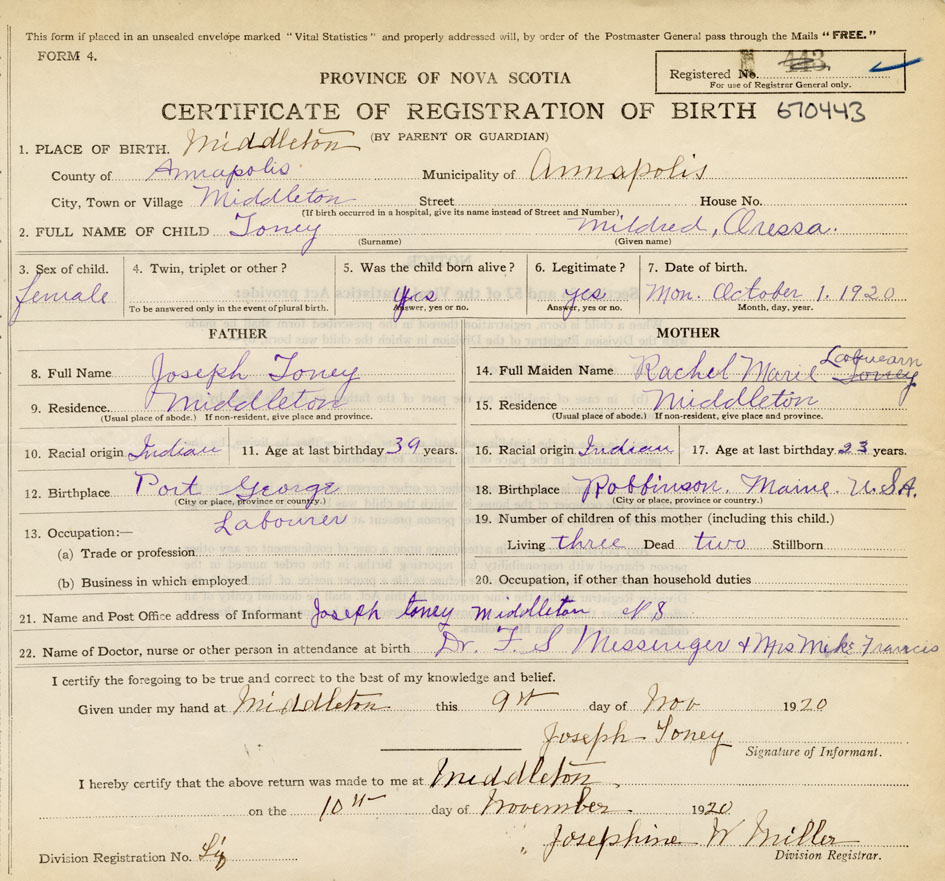 This form if placed in an unsealed envelope marked "Vital Statistics" and properly addressed will, by order of the Postmaster General pass through the Mails "FREE."
FORM 4.
Registered No. 443
For use of Registrar General only.
PROVINCE OF NOVA SCOTIA
CERTIFICATE OF REGISTRATION OF BIRTH 670443
(BY PARENT OR GUARDIAN)
1. PLACE OF BIRTH. Middleton
County of Annapolis Municipality of Annapolis
City, Town or Village Middleton Street House No.
(If birth occurred in a hospital, give its name instead of Street and Number)
2. FULL NAME OF CHILD Toney Mildred, Oressa.
(Surname) (Given name)
3. Sex of child. 4. Twin, triplet or other? 5. Was the child born alive? 6. Legitimate? 7. Date of birth.
female yes yes Mon. October 1. 1920
To be answered only in the event of plural birth. Answer, yes or no. Answer, yes or no. Month, day, year.
FATHER
8. Full Name Joseph Toney
9. Residence. Middleton
(Usual place of abode.) If non-resident, give place and province.
10. Racial origin Indian 11. Age at last birthday 39 years.
12. Birthplace Port George
(City or place, province or country.)
13. Occupation:— Labourer
(a) Trade or profession
(b) Business in which employed
MOTHER
14. Full Maiden Name Rachel Marie Toney
15. Residence Middleton
(Usual place of abode.) If non-resident, give place and province.
16. Racial origin Indian 17. Age at last birthday 23 years.
18. Birthplace Robbinson. Maine. U.S.A.
(City or place, province or country.)
19. Number of children of this mother (including this child.)
Living three Dead two Stillborn
20. Occupation, if other than household duties
21. Name and Post Office address of Informant Joseph toney Middleton N S
22. Name of Doctor, nurse or other person in attendance at birth Dr. F. S Messinger + Mrs Mike Francis
I certify the foregoing to be true and correct to the best of my knowledge and belief.
Given under my hand at Middleton this 9th day of Nov 1920
Joseph Toney
Signature of Informant.
I hereby certify that the above return was made to me at Middleton
on the 10th day of November. 1920
Josephine W Miller
Division Registrar.
Division Registration No.